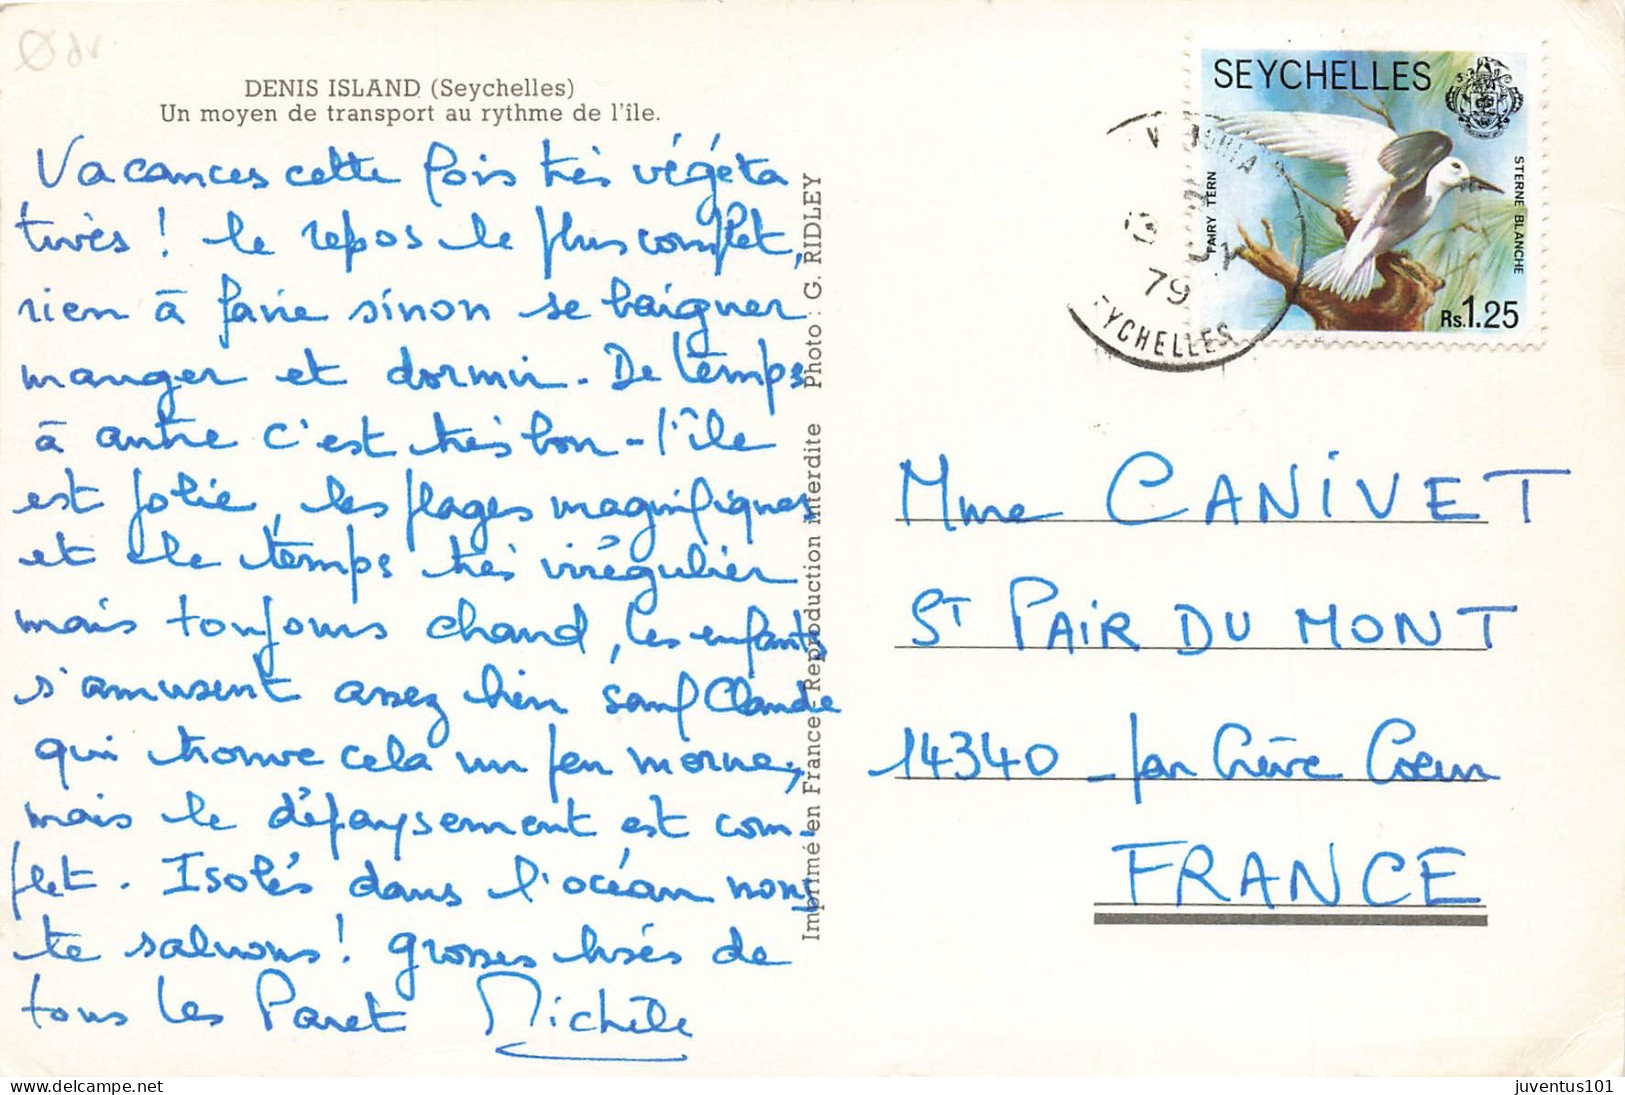 DENIS ISLAND (Seychelles)
Un moyen de transport au rythme de l'île.
Vacances cette fois très végéta
tives ! le repos le plus complet,
rien à faire sinon se baigner
manger et dormir. De temps
à autre c'est très bon - l'île
est jolie, les plages magnifiques
et le temps très irrégulier
mais toujours chaud, les enfants
s'amusent assez bien sauf Claude
qui trouve cela un peu morne,
mais le dépaysement est com-
plet. Isolés dans l'océan nous
te saluons ! grosses bises de
tous les Paret Michèle
Imprimé en France - Reproduction interdite Photo : G. RIDLEY
SEYCHELLES
FAIRY TERN
STERNE BLANCHE
Rs.1.25
79
SEYCHELLES
Mme CANIVET
ST PAIR DU MONT
14340 - par Crève Coeur
FRANCE
juventus101